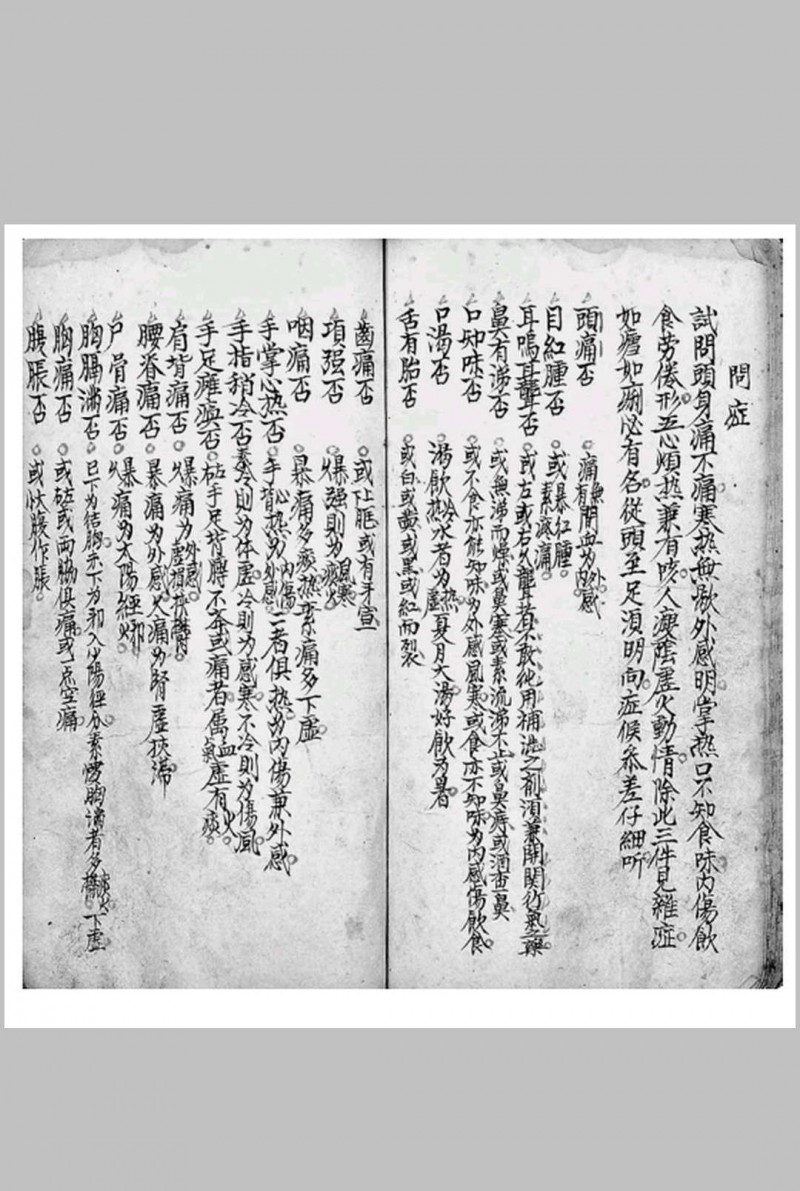 問症
試問頭身痛不痛寒熱無歇外感明掌熱口不知食味內傷飲
食勞倦形五心煩熱兼有咳人瘦陰虛火動情除此三件見雜症
如瘧如痢必有名從頭至足須明向症候參差仔細听
頭痛否 痛無間為外感 有間為內傷
目紅腫否 或暴紅腫 或素流痛
耳嗚耳聾否 或左或右久聾者不敢純用補洗之劑須兼開関行氣藥
鼻有涕否 或無涕而燥或鼻塞或素流涕不止或鼻痔或酒查鼻
口知味否 或不食亦能知味为外感風寒或食亦不知味为內感傷飲食
口渴否 渴飲冷水者为熱 渴飲熱水者为虛 夏月大渴好飲为暑
舌有胎否 或白或黃或黑或紅而裂
齒痛否 或上眶或有牙宣
項强否 爆强則为風寒 痰火
咽痛否 暴痛多痰熱素痛多下虛
手掌心熱否 手心熱为內傷 手背熱为外感 二者俱熱为內傷兼外感
手指稍冷否 素冷則为体虛冷則为感寒不冷則为傷風
手足癱瘓否 左手足背膊不莽或痛者属血氣虛有火痰
肩背痛否 爆痛为外感
腰脊痛否 暴痛为外感久痛为腎虛挾滯
尸骨痛否 爆痛为太陽經邪
胸膈滿否 已下为結胸未下为邪入少陽經分素 胸滿者多痰火下虛
胸痛否 或左或兩脇俱痛或一点空痛
腹脹否 或状腹作脹